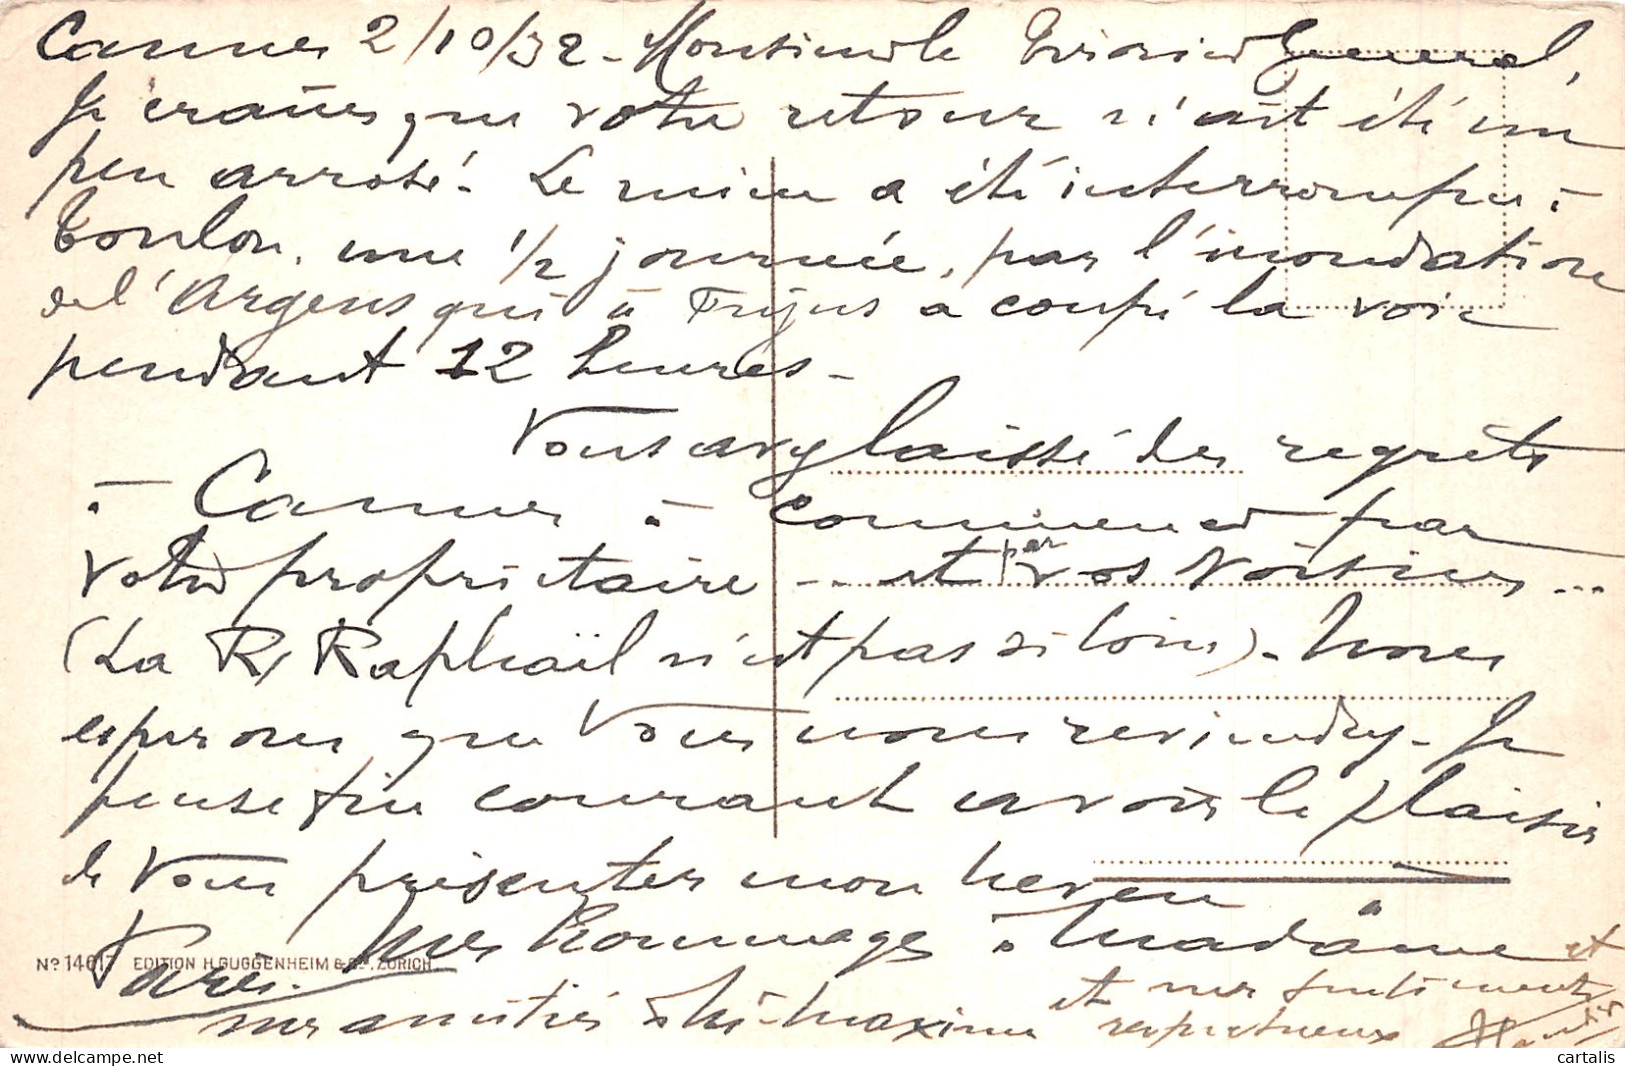 Cannes 2/10/32 - Monsieur le Trésorier Général,
Je crains que votre retour n'ait été un
peu arrosé. Le mien a été interrompu à
Toulon, une 1/2 journée, par l'inondation
de l'Argens qui à Fréjus a coupé la voie
pendant 12 heures -
Vous avez laissé des regrets
à Cannes à commencer par
votre propriétaire ... et par vos voisins ...
(La R. Raphaël n'est pas si loin). Nous
espérons que vous nous reviendrez. Je
pense fin courant avoir le plaisir
de vous présenter mon neveu
Paris. Mes hommages à Madame et
mes amitiés à Maxime et mes sentiments
respectueux
No 14617 EDITION H. GUGGENHEIM & Co., ZÜRICH
cartalis